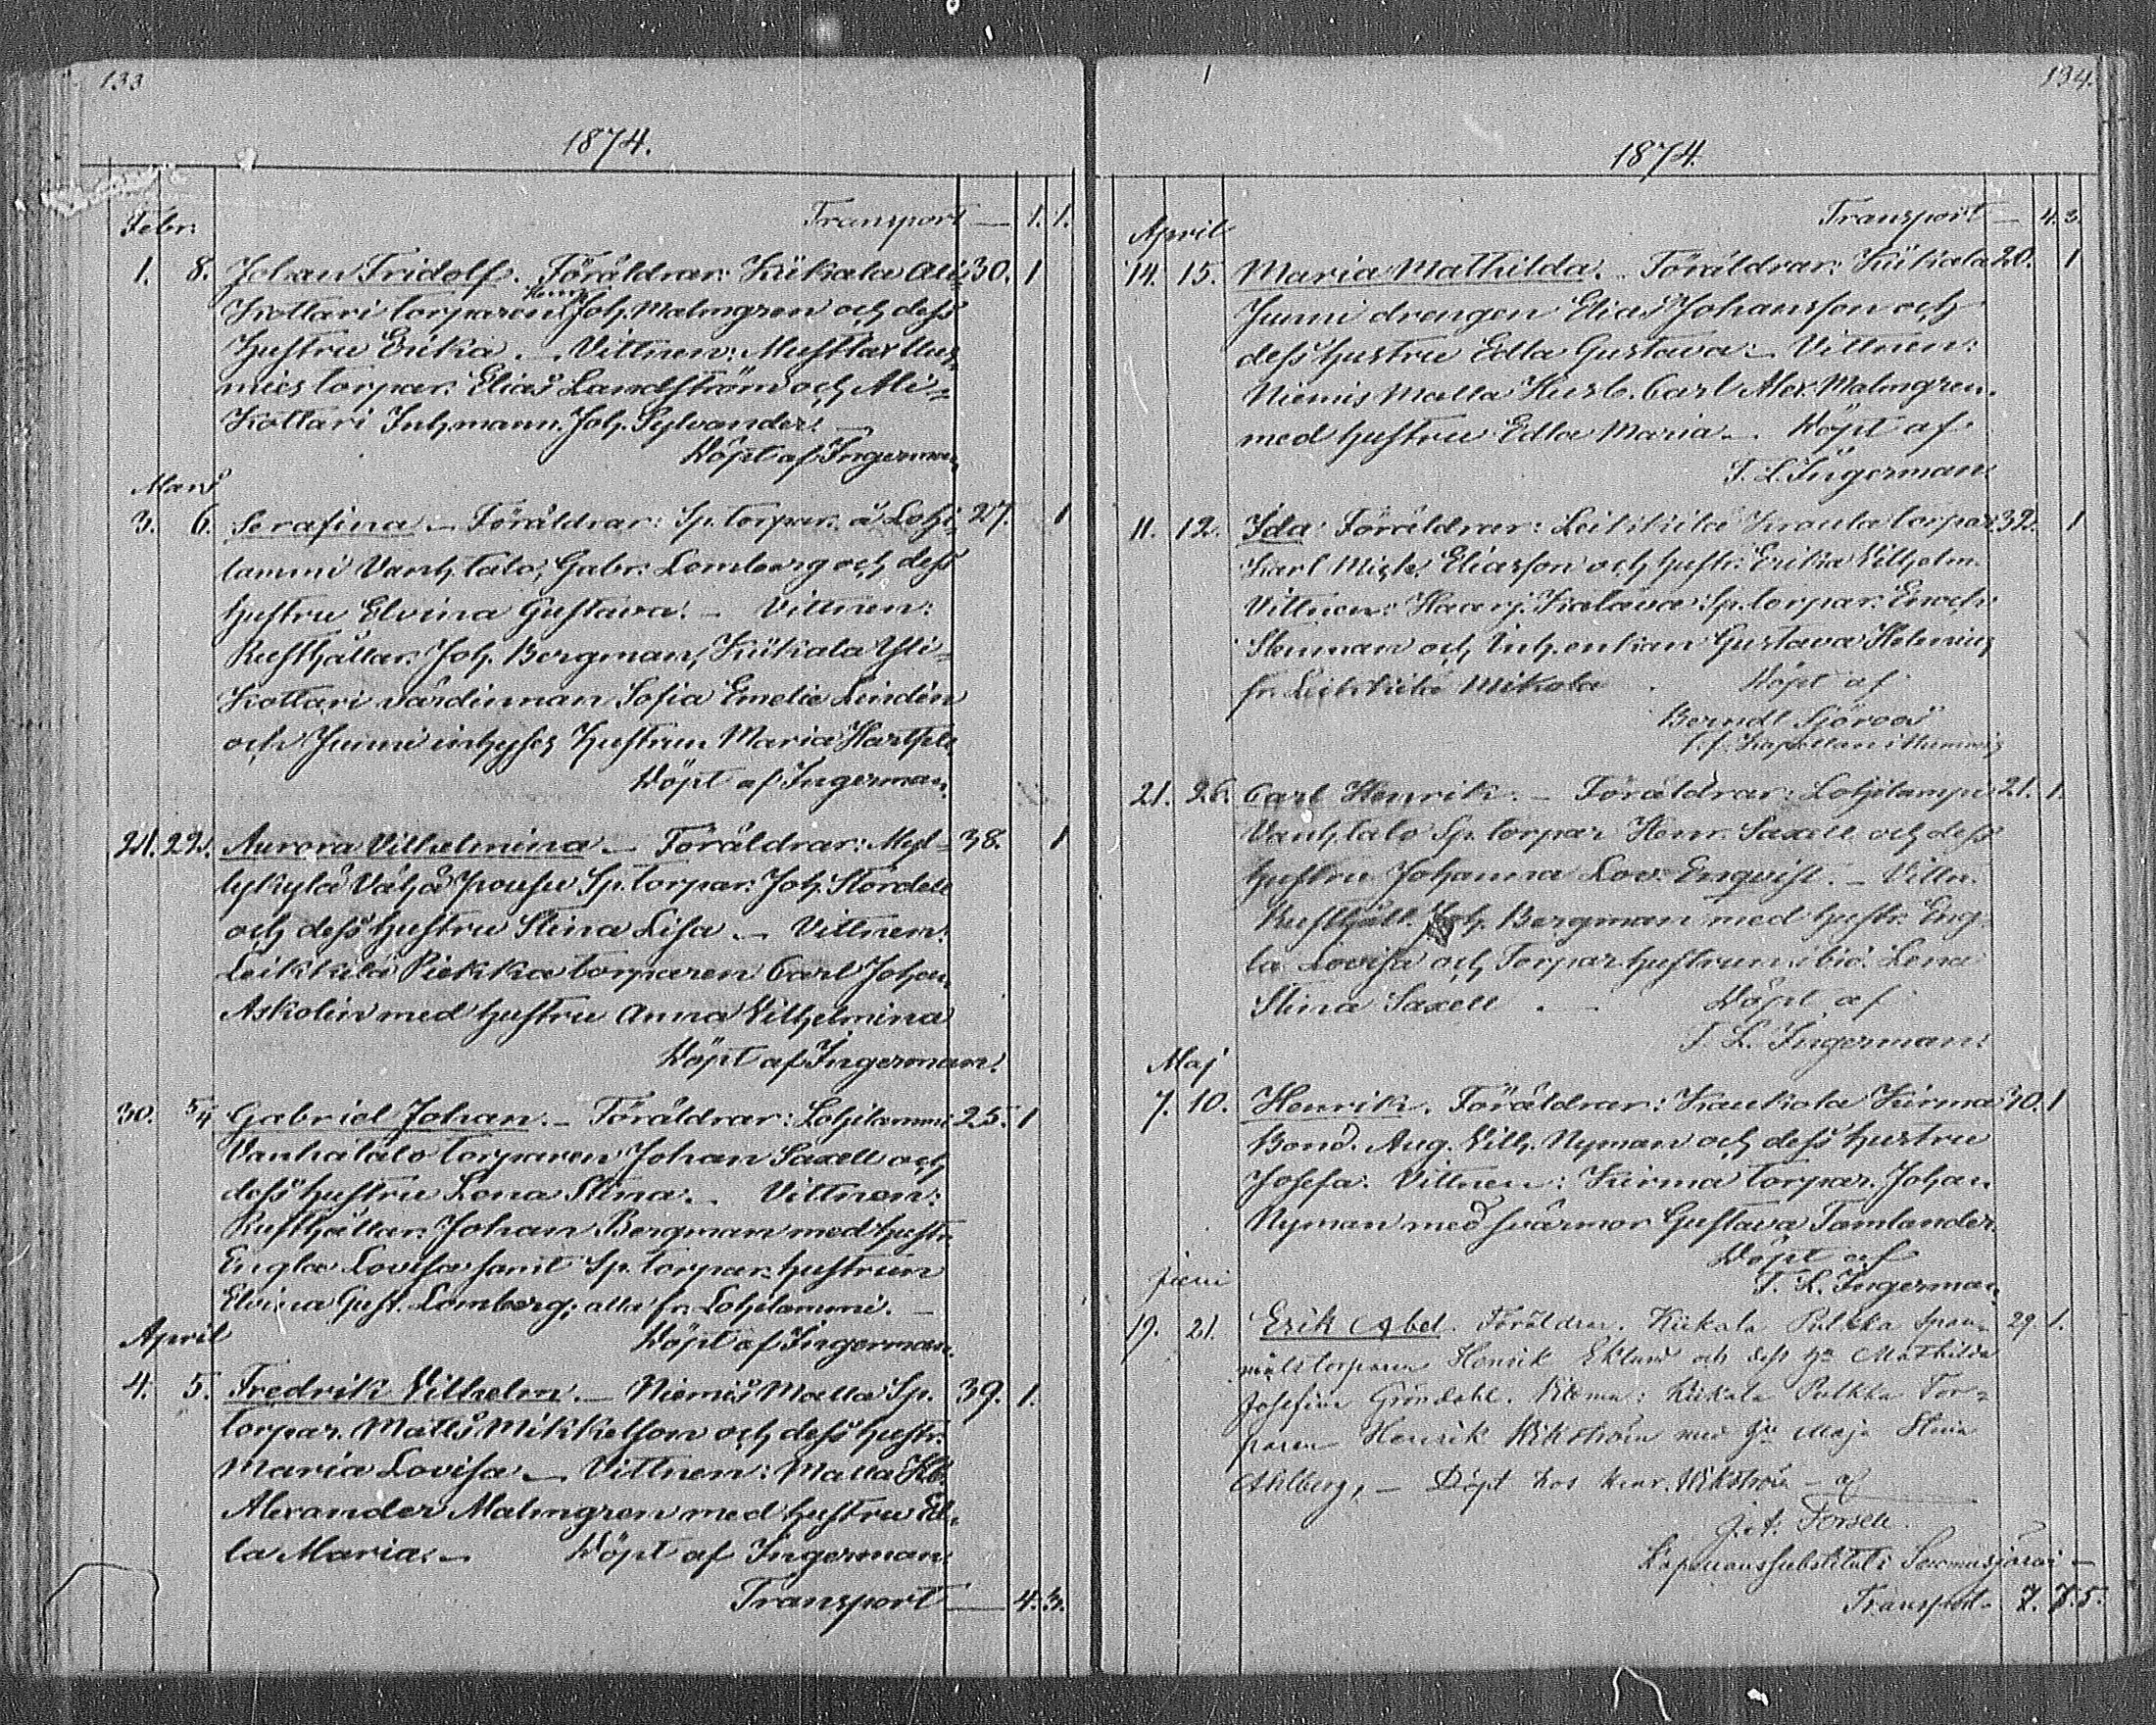 133
1874.
Febr. Transport — 1. 1.
1. 8. Johan Fridolf. Föräldrar: Kiikala Ali- 30. 1
Henr.
Kottari torparen Joh. Malmgren och dess
hustru Erika. — Vittnen:
mies torpar. Elias Landström och Ali-
Kottari Inh.mann. Joh. Sylvander. —
Döpt af Ingerman
Mars
3. 6. Serafina. — Föräldrar: Sp. torpar. å Lohi- 27. 1
lammi Vanh.talo, Gabr. Lomberg och dess
hustru Elvina Gustava. — Vittnen:
Rusthållar. Joh. Bergman, Kiikala Yli-
Kottari värdinnan Sofia Emelie Lindén
och Junni inhyses hustrun Maria
Döpt af Ingerman.
21. 22. Aurora Vilhelmina. — Föräldrar: Myl- 38. 1
lykylä Vähä Sp. torpar. Joh. Stordell
och dess hustru Stina Lisa. — Vittnen:
Leikkilä Piekka torparen Carl Johan
Askolin med hustru Anna Vilhelmina
Döpt af Ingerman.
30. 5/4 Gabriel Johan. — Föräldrar: Lohilammi 25. 1
Vanhatalo torparen Johan Saxell och
dess hustru Lena Stina. — Vittnen:
Rusthållar. Johan Bergman med hustr.
Engla Lovisa samt Sp. torpar. hustrun
Elvina Gust. Lomberg; alla fr. Lohilammi. —
April Döpt af Ingerman.
4. 5. Fredrik Vilhelm. — Niemis Malla Sp. 39. 1.
torpar. Matts Mikkelson och dess hustr.
Maria Lovisa. — Vittnen: Malla Hb.
Alexander Malmgren med hustru Ed-
la Maria. — Döpt af Ingerman
Transport — 4. 3.
134.
1874.
April Transport — 4. 3.
14. 15. Maria Mathilda. Föräldrar: Kiikala 20. 1
Junni drengen Elias Johansson och
dess hustru Edla Gustava. — Vittnen:
Niemis Malla Husb. Carl Alex. Malmgren
med hustru Edla Maria. — Döpt af
T. L. Ingerman.
11. 12. Ida: Föräldrar: Leikkilä torpar 32. 1
Karl Mich. Eliasson och hustr. Erika Vilhelm.
Vittnen: Sp. torpar. Enoch
Stenman och Inh.enkan Gustava Helenius
fr. Leikkilä Mikola. Döpt af
Berndt Sjöroos
t.f. Kapellan i
21. 26. Carl Henrik. — Föräldrar: Lohilampi 21. 1.
Vanh.talo Sp. torpar. Henr. Saxell och dess
hustru Johanna Lov. Enqvist. — Vittn.
Rusthåll. Joh. Bergman med hustr. Eng-
la Lovisa och Torpar hustrun ibid. Lena
Stina Saxell. — Döpt af
T. L. Ingerman.
Maj
7. 10. Henrik. Föräldrar: Kaukola Kirma 30. 1
Bond. Aug. Vilh. Nyman och dess hustru
Josefa. Vittnen: Kirma torpar. Johan
Nyman med svärmor Gustava Tamlander.
Döpt af
T. L. Ingerman.
Juni
19. 21. Erik Abel. Föräldrar. Kiikala Pulkka Span- 29. 1.
målstorparen Henrik Eklund och dess hu Mathilda
Josefina Gröndahl. Vittnen: Kiikala Pulkka Tor-
paren Henrik Wikström med hu Maja Stina
Ahlberg, — Döpt hos Henr. Wikström — af
J. A. Forsell
Kapellanssubstitut i Somusjärvi —
Transport. 7. 7. 5.